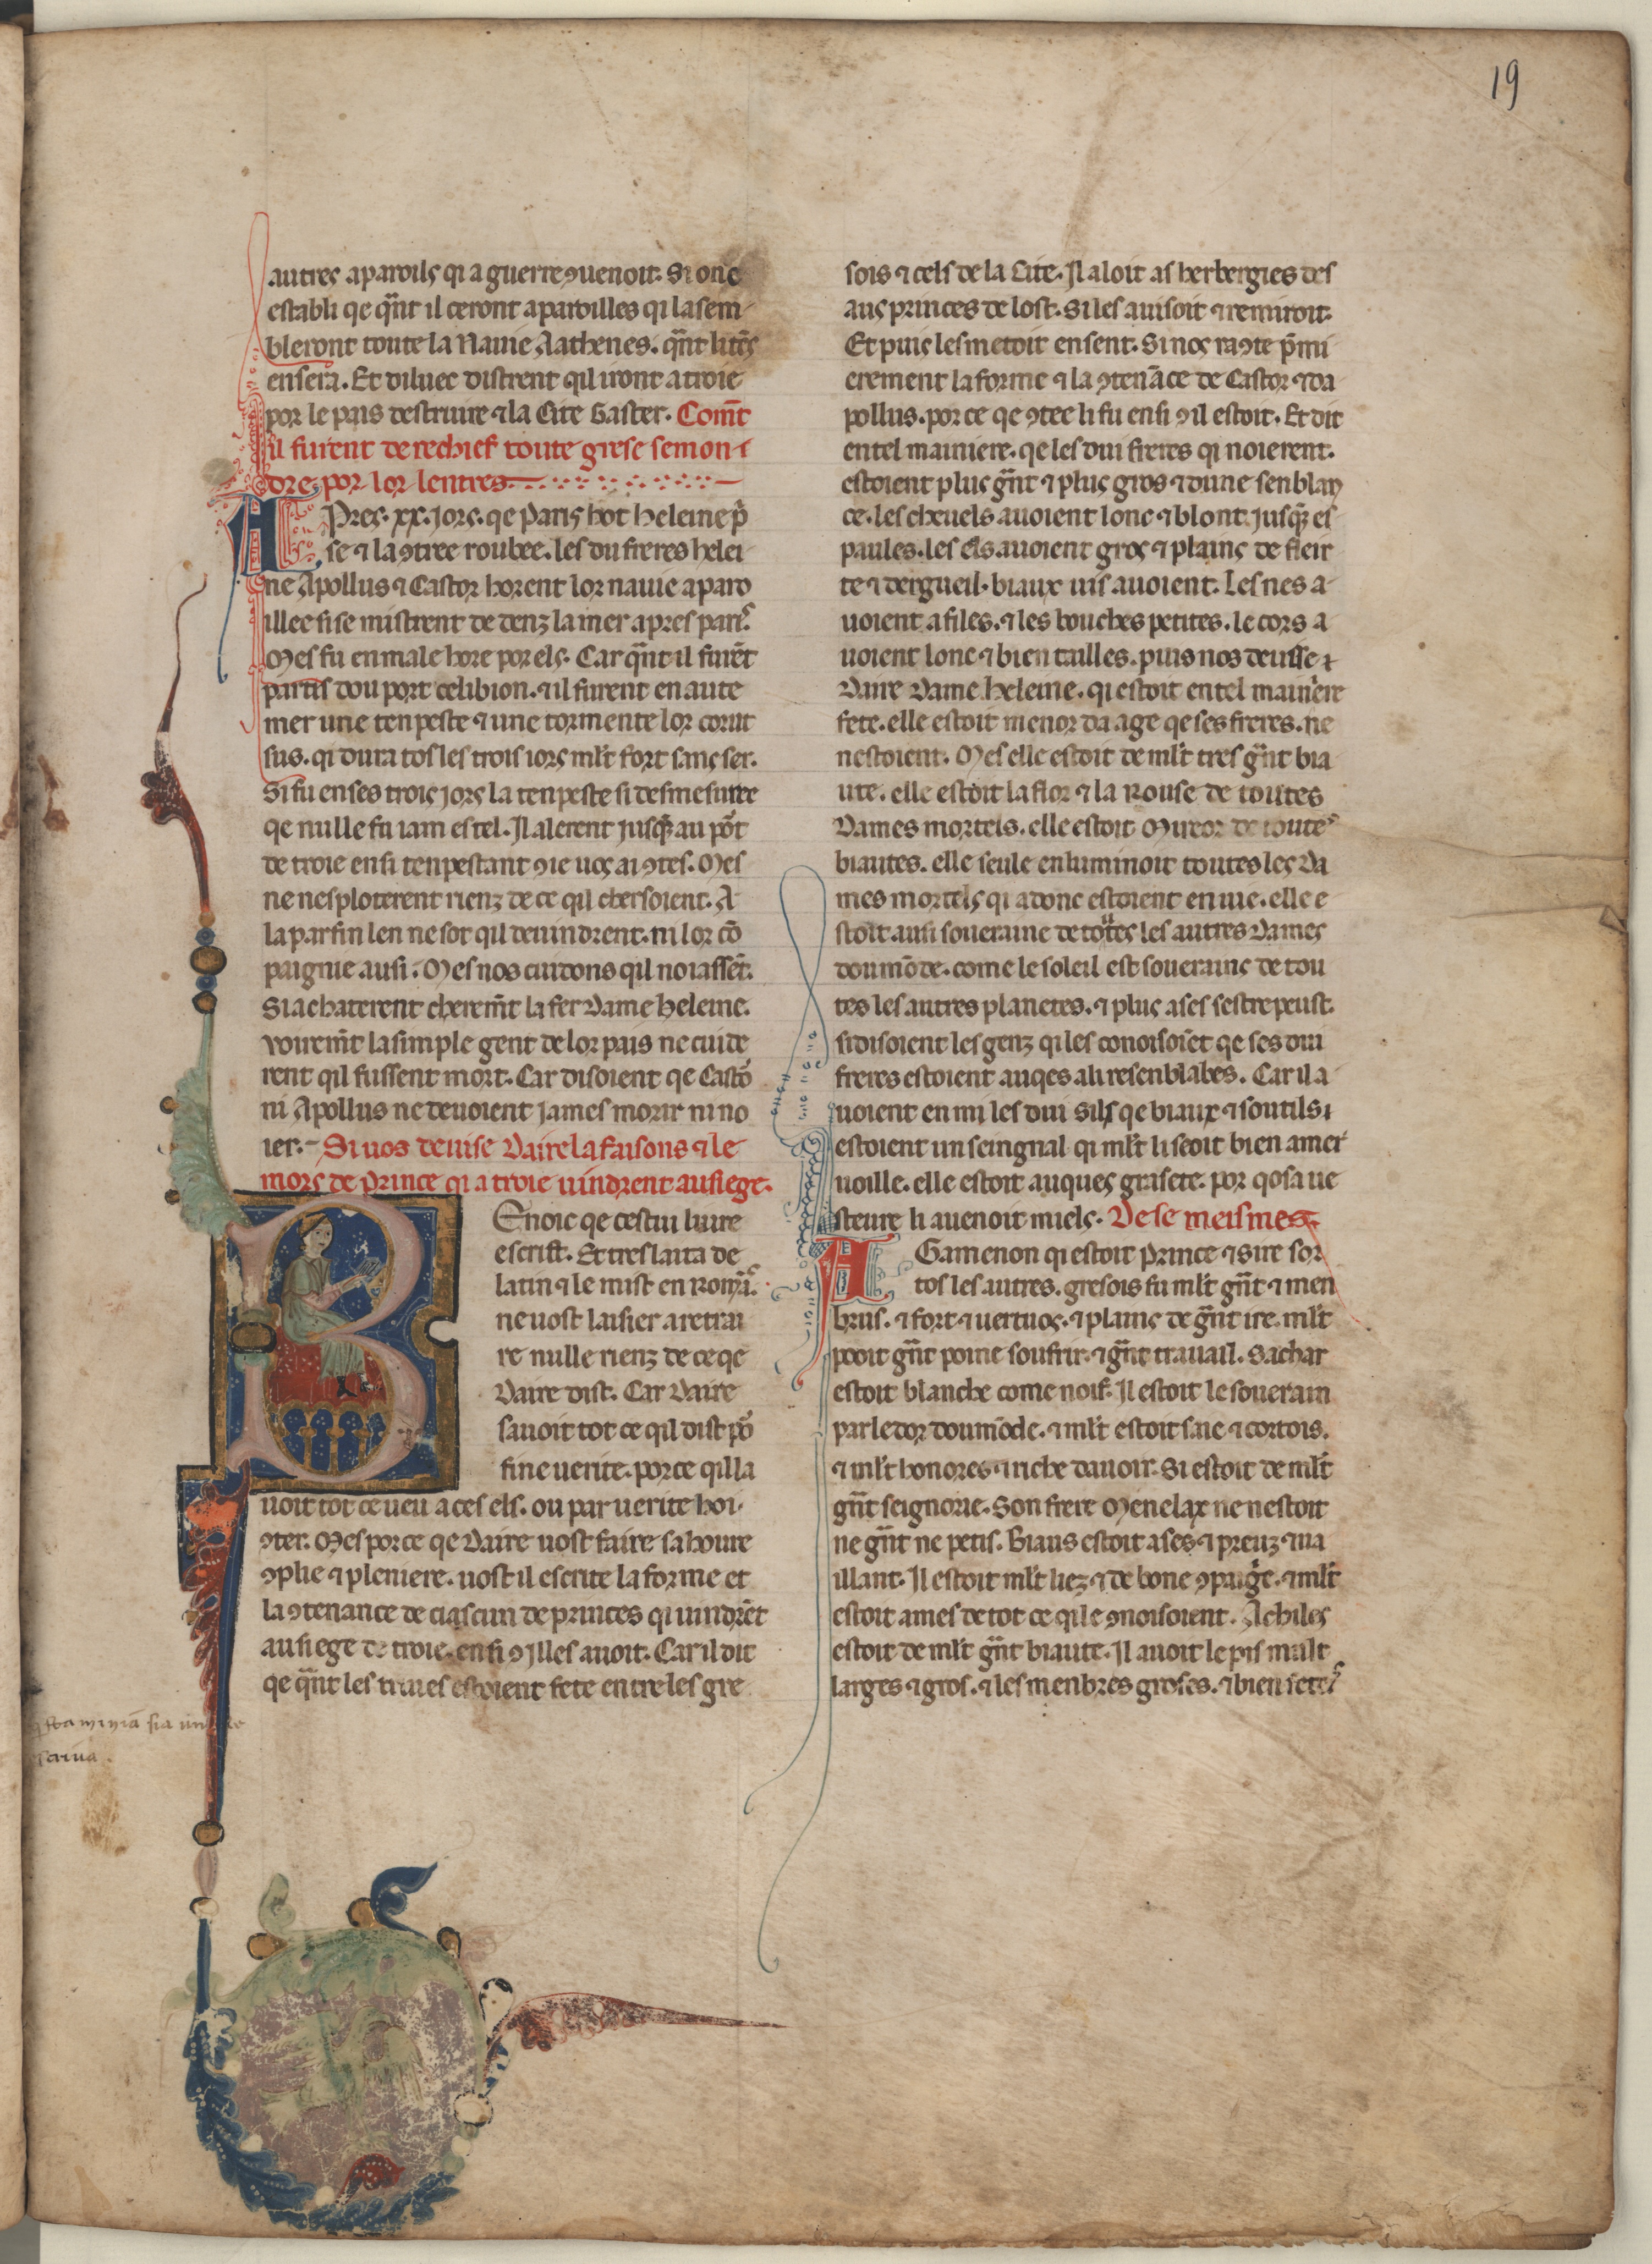 19
autres aparoils qi a guerre ꝯuenoit. Si onc
establi qe qͣnt il ceront aparoilles qi lasem
bleront toute la Nauie Aathenes. qͣnt litēs
ensera. Et diluec distrent qil iront atroie
por le pais destruire ⁊ la Cite Gaster. Comt̄
il furent derechief toute grese semon
dre por lor lentres
APres .xx. jors. qe Paris hot heleine p̄
se ⁊ la ꝯtree roubee. les du freres helei
ne Apollus ⁊ Castor horent lor nauie aparo
illee si se mistrent de denz la mer apres paris.
Mes fu en male hore por els. Car qͣnt il furēt
partis dou port celibion. ⁊ il furent en aute
mer une tenpeste ⁊ une tormente lor corut
sus. qi dura tos les trois iors ml't fort sans ser.
Si fu en ses trois jors la tenpeste si desmesuree
qe nulle fu iam estel. Il alerent jusqͣ au pōt
de troie ensi tenpestant ꝯ ie uos ai ꝯtes. Mes
ne nesploterent rienz de ce qil chersoient. A
la parfin len ne sot qil deuindrent. ni lor cō
paignie ausi. Mes nos cuidons qil noiassēt.
Si achaterent cherem̄t la fer Dame heleine.
voirem̄t la simple gent de lor pais ne cuide
rent qil fussent mort. Car disoient qe Castō
ni Apollus ne deuoient james morir ni no
ier. Si uos deuise Daire la faisons ⁊ le
mors de prince qi a troie uindrent au siege.
BEnoic qe cestui liure
escrist. Et treslaita de
latin ⁊ le mist en Romās.
ne uost laisier a retrai
re nulle rienz de ce qe
Daire dist. Car Daire
sauoit tot ce qil dist pō
fine uerite. por ce qil la
uoit tot ce ueu a ces els. ou par uerite hoi
ꝯter. Mes por ce qe Daire uost faire sa houre
ꝯplie ⁊ pleniere. uost il escrite la forme et
la ꝯtenance de ciascun de princes qi uindrēt
au siege de troie. ensi ꝯ Jlles auoit. Car il dit
qe qͣnt les triues estoient fete entre les gre
sois ⁊ cels de la Cite. Il aloit as herbergies des
aus princes de lost. Si les auisoit ⁊ remiroit.
Et puis les metoit en sent. Si nos raꝯte p̄mi
erement la forme ⁊ la ꝯtenāce de Castor ⁊ da
pollus. por ce qe ꝯtee li fu ensi ꝯ il estoit. Et dit
en tel mainiere. qe les dui freres qi noierent.
estoient plus gͣnt ⁊ plus gros ⁊ dune senblan
ce. les cheuels auoient lonc ⁊ blont. jusqͣ es
paules. les els auoient gros ⁊ plains de fieir
te ⁊ dergueil. biaux uis auoient. Les nes a
uoient afiles. ⁊ les bouches petites. le cors a
uoient lonc ⁊ bien tailles. puis nos deuisse
Daire Dame heleine. qi estoit en tel mainere
fete. elle estoit menor da age qe ses freres. ne
nestoient. Mes elle estoit de ml't tres gͣnt bia
ute. elle estoit la flor ⁊ la Rouse de toutes
Dames mortels. elle estoit Mireor de toutes
biautes. elle seule enluminoit toutes les Da
mes mortels qi adonc estoient en uie. elle e
stoit ausi soueraine de totes les autres Dames
dou mōde. come le soleil est souerains de tou
tes les autres planetes. ⁊ plus ases sestre peust.
si disoient les genz qi les conoisoiēt qe ses dui
freres estoient auqes a li resenblabes. Car il a
uoient en mi les dui silf qe biaux ⁊ soutils
estoient un seingnal qi ml't li seoit bien a mer
uoille. elle estoit auques grasete. por qo sa ue
steure li auenoit miels. De se meismes
AGamenon qi estoit prince ⁊ sire sor
tos les autres. gresois fu ml't gͣnt ⁊ men
brus. ⁊ fort ⁊ uertuos. ⁊ plains de gͣnt ire. ml't
pooit gͣnt poine soufrir. ⁊ gͣnt trauail. Sa char
estoit blanche come noif. Il estoit le souerain
parledor dou mōde. ⁊ ml't estoit saie ⁊ cortois.
⁊ ml't honores ⁊ riche dauoir. Si estoit de ml't
gͣnt seignorie. Son frere Menelax ne nestoit
ne gͣnt ne petis. Biaus estoit ases ⁊ preuz ⁊ ua
illant. Il estoit ml't liez ⁊ de bone ꝯpaigē. ⁊ ml't
estoit ames de tot ce qi le ꝯnoisoient. Achiles
estoit de ml't gͣnt biaute. Il auoit le pis mult
larges ⁊ gros. ⁊ les menbres groses. ⁊ bien fetes